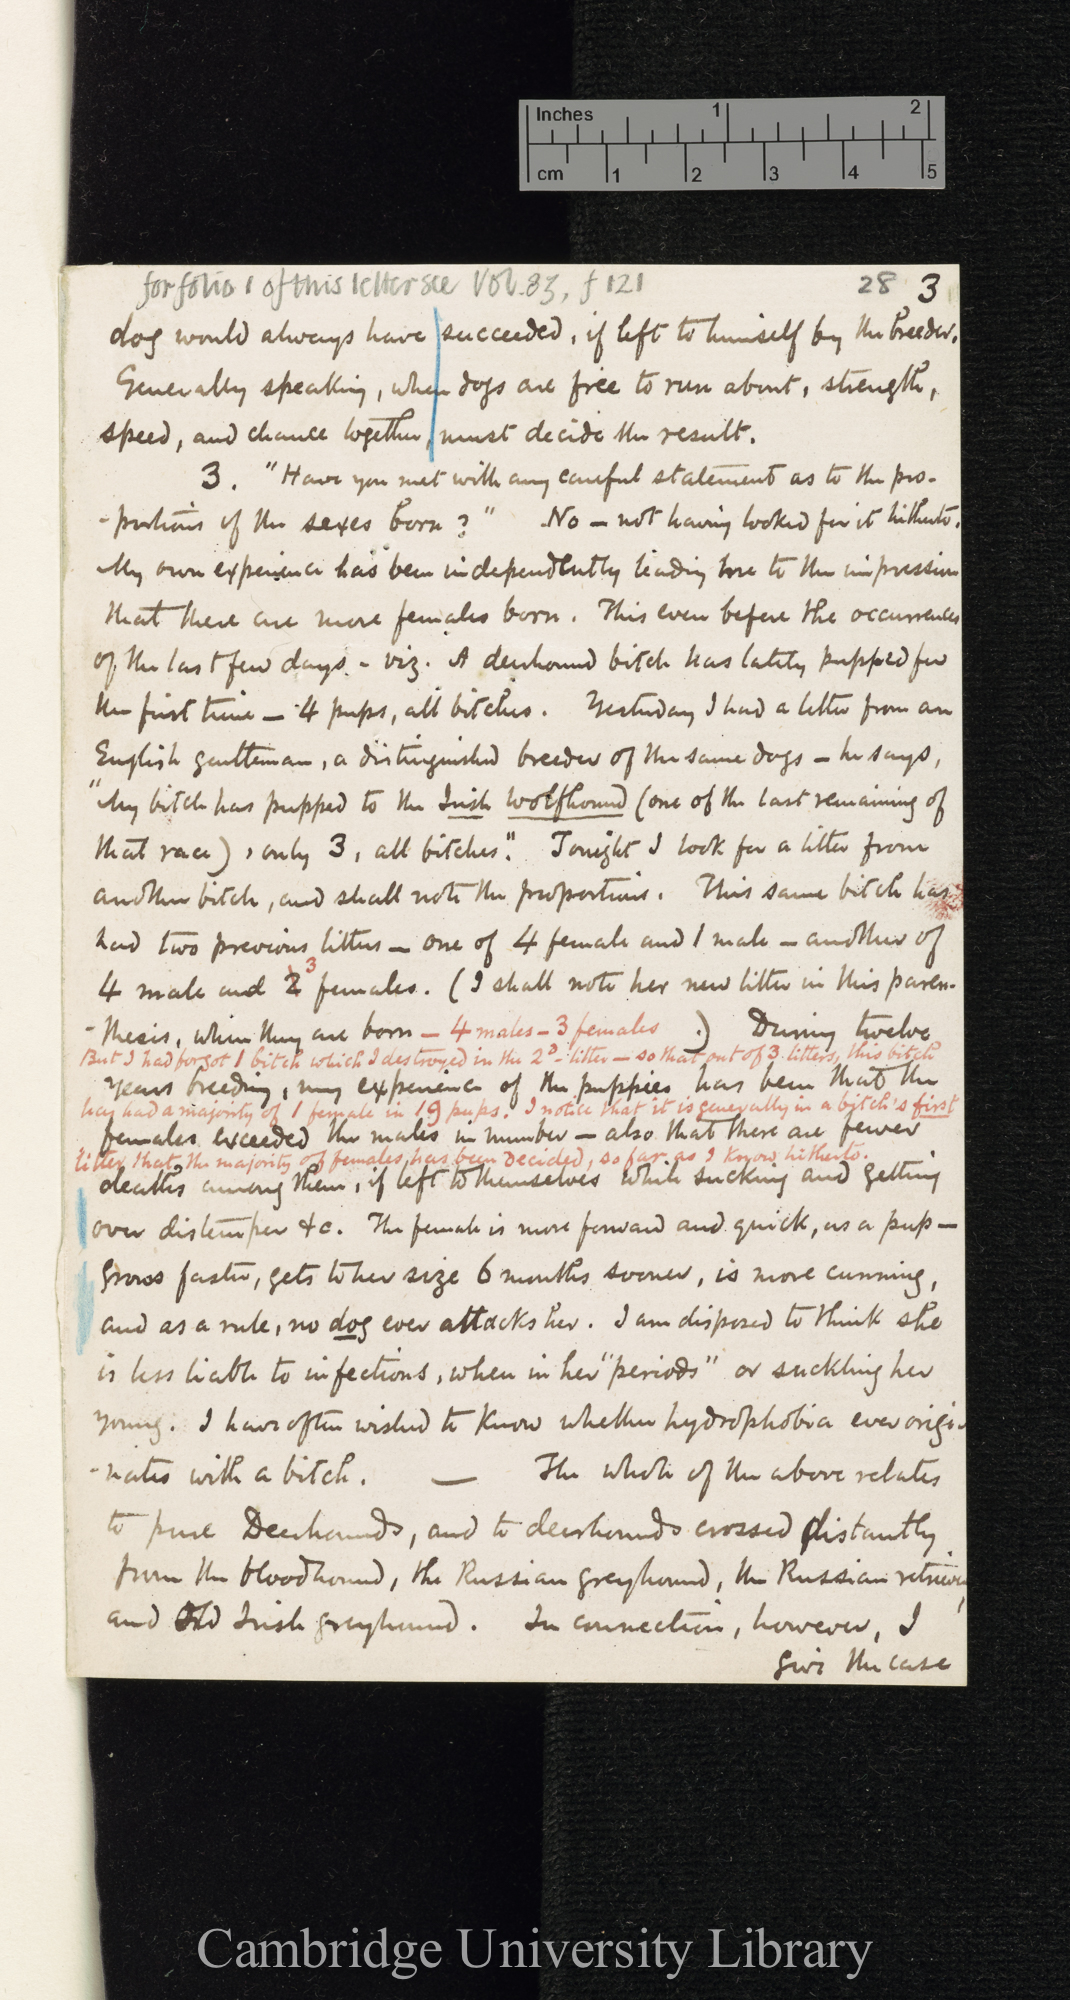 Inches 1 2
cm 1 2 3 4 5
for folio 1 of this letter see Vol. 83, f 121
28 3
dog would always have succeeded, if left to himself by the breeder.
Generally speaking, when dogs are free to run about, strength,
speed, and chance together, must decide the result.
3. "Have you met with any careful statement as to the pro-
-portions of the sexes born?" No — not having looked for it hitherto.
My own experience has been independently leading me to the impression
that there are more females born. This even before the occurrences
of the last few days - viz. A deerhound bitch has lately pupped for
the first time — 4 pups, all bitches. Yesterday I had a letter from an
English gentleman, a distinguished breeder of the same dogs — he says,
"My bitch has pupped to the Irish Wolfhound (one of the last remaining of
that race), only 3, all bitches". Tonight I look for a litter from
another bitch, and shall note the proportions. This same bitch has
had two previous litters — one of 4 female and 1 male — another of
4 male and 2 3 females. (I shall note her new litter in this paren-
-thesis, when they are born — 4 males — 3 females .) During twelve
But I had forgot 1 bitch which I destroyed in the 2d. litter — so that out of 3 litters, this bitch
years breeding, my experience of the puppies has been that the
has had a majority of 1 female in 19 pups. I notice that it is generally in a bitch's first
females exceeded the males in number — also that there are fewer
litter that the majority of females has been decided, so far as I know hitherto.
deaths among them, if left to themselves while sucking and getting
over distemper &c. The female is more forward and quick, as a pup —
grows faster, gets to her size 6 months sooner, is more cunning,
and as a rule, no dog ever attacks her. I am disposed to think she
is less liable to infections, when in her "periods" or suckling her
young. I have often wished to know whether hydrophobia ever origi-
-nates with a bitch. — The whole of the above relates
to pure Deerhounds, and to deerhounds crossed distantly
from the bloodhound, the Russian greyhound, the Russian retriever,
and Old Irish greyhound. In connection, however, I
give the case
Cambridge University Library